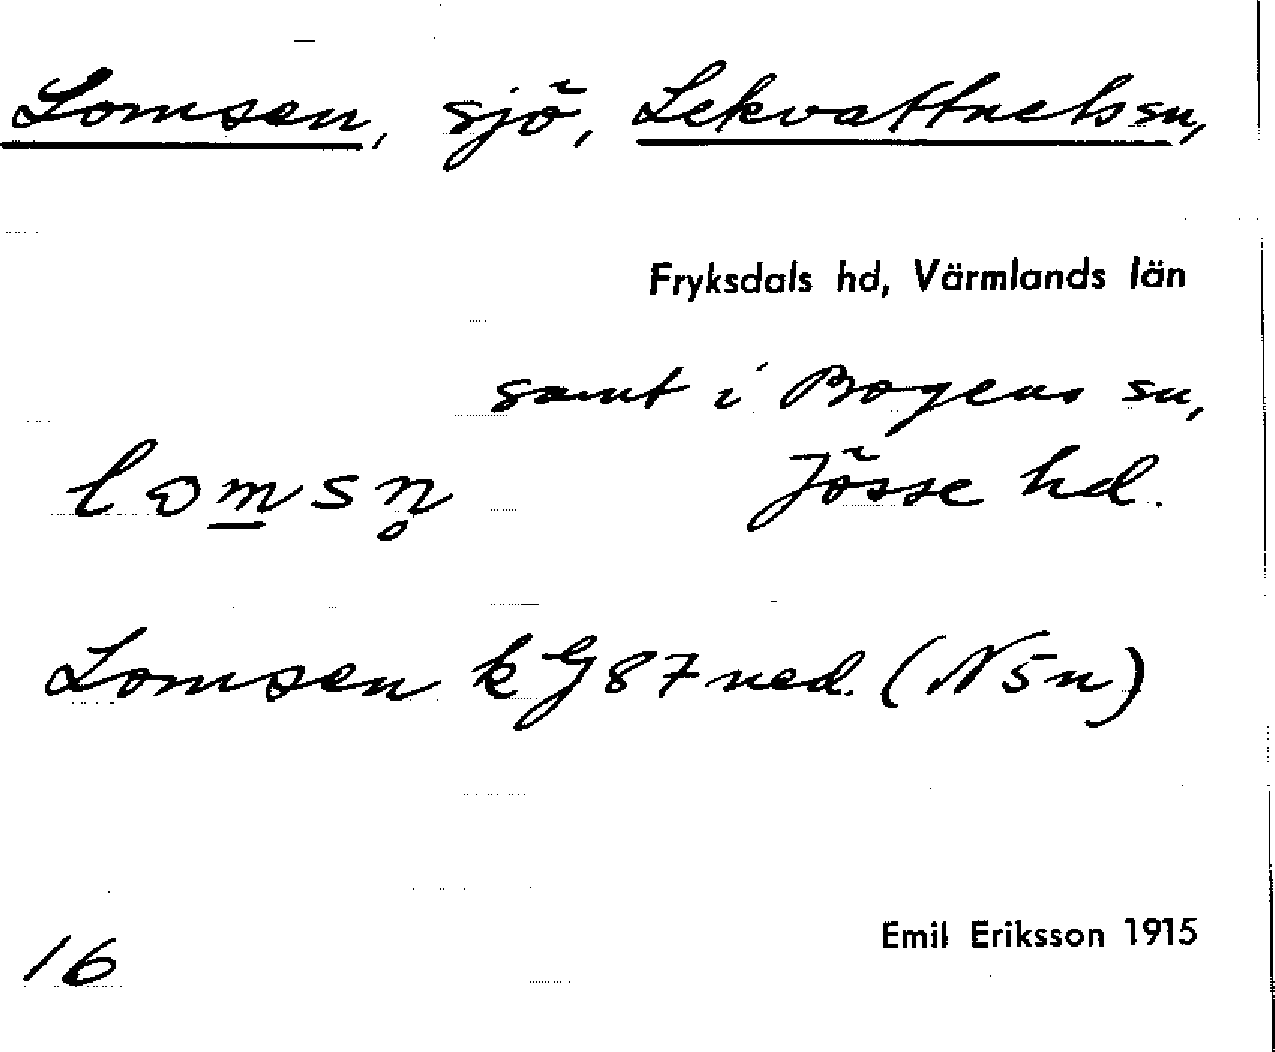 Lomsen, sjö, Lekvattnets sn,
Fryksdals hd, Värmlands län
samt i Bogens sn,
lomsn̥ Jösse hd.
Lomsen kG 87 ned. (N5n)
16 Emil Eriksson 1915